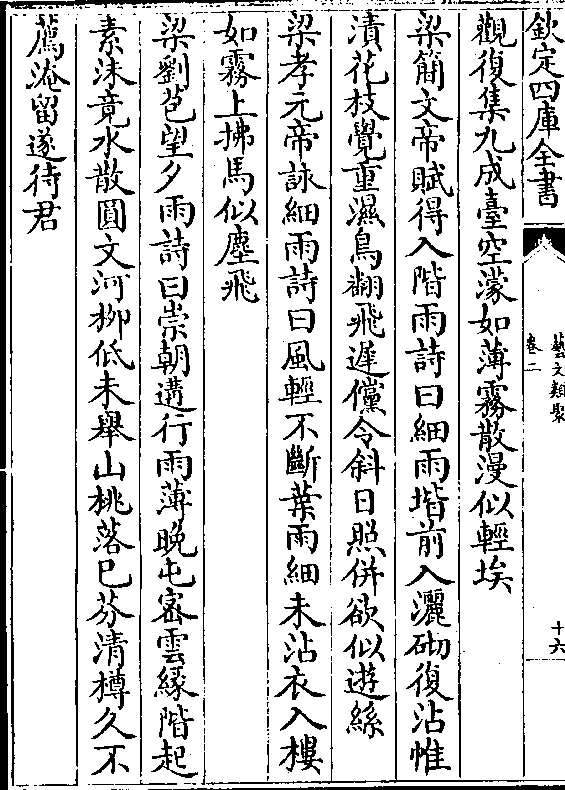 欽定四庫全書
藝文類聚
卷二
十六
觀復集九成臺空濛如薄霧散漫似輕埃
梁簡文帝賦得入階雨詩曰細雨堦前入灑砌復沾帷
漬花枝覺重濕鳥翻飛遲儻令斜日照併欲似遊絲
梁孝元帝詠細雨詩曰風輕不斷葉雨細未沾衣入樓
如霧上拂馬似塵飛
梁劉苞望夕雨詩曰崇朝遘行雨薄晚屯密雲緣階起
素沫竟水散圓文河柳低未舉山桃落已芬清樽久不
薦淹留遂待君